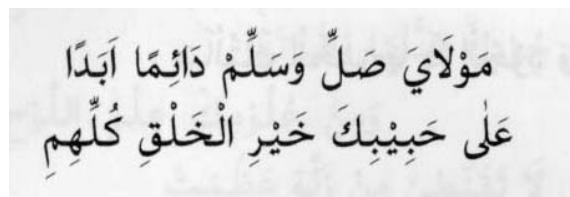 مَوْلَايَ صَلِّ وَسَلِّمْ دَائِمًا اَبَدًا
عَلٰى حَبِيْبِكَ خَيْرِ الْخَلْقِ كُلِّهِمِ